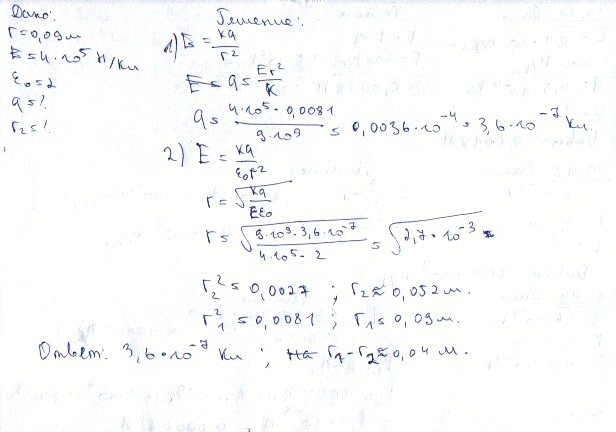 Дано:
r=0,09м
E=4·10⁵ Н/Кл
ε₀=2
q=?
r₂=?
Решение:
1) E = kq/r²
q = Er²/k
q = 4·10⁵·0,0081 / 9·10⁹ = 0,0036·10⁻⁴ = 3,6·10⁻⁷ Кл.
2) E = kq/ε₀r²
r = √(kq/Eε₀)
r = √(9·10⁹·3,6·10⁻⁷ / 4·10⁵·2) = √(2,7·10⁻³)
r₂² = 0,0027 ; r₂ ≈ 0,052 м.
r₁² = 0,0081 ; r₁ = 0,09 м.
Ответ: 3,6·10⁻⁷ Кл ; r₁-r₂≈0,04 м.